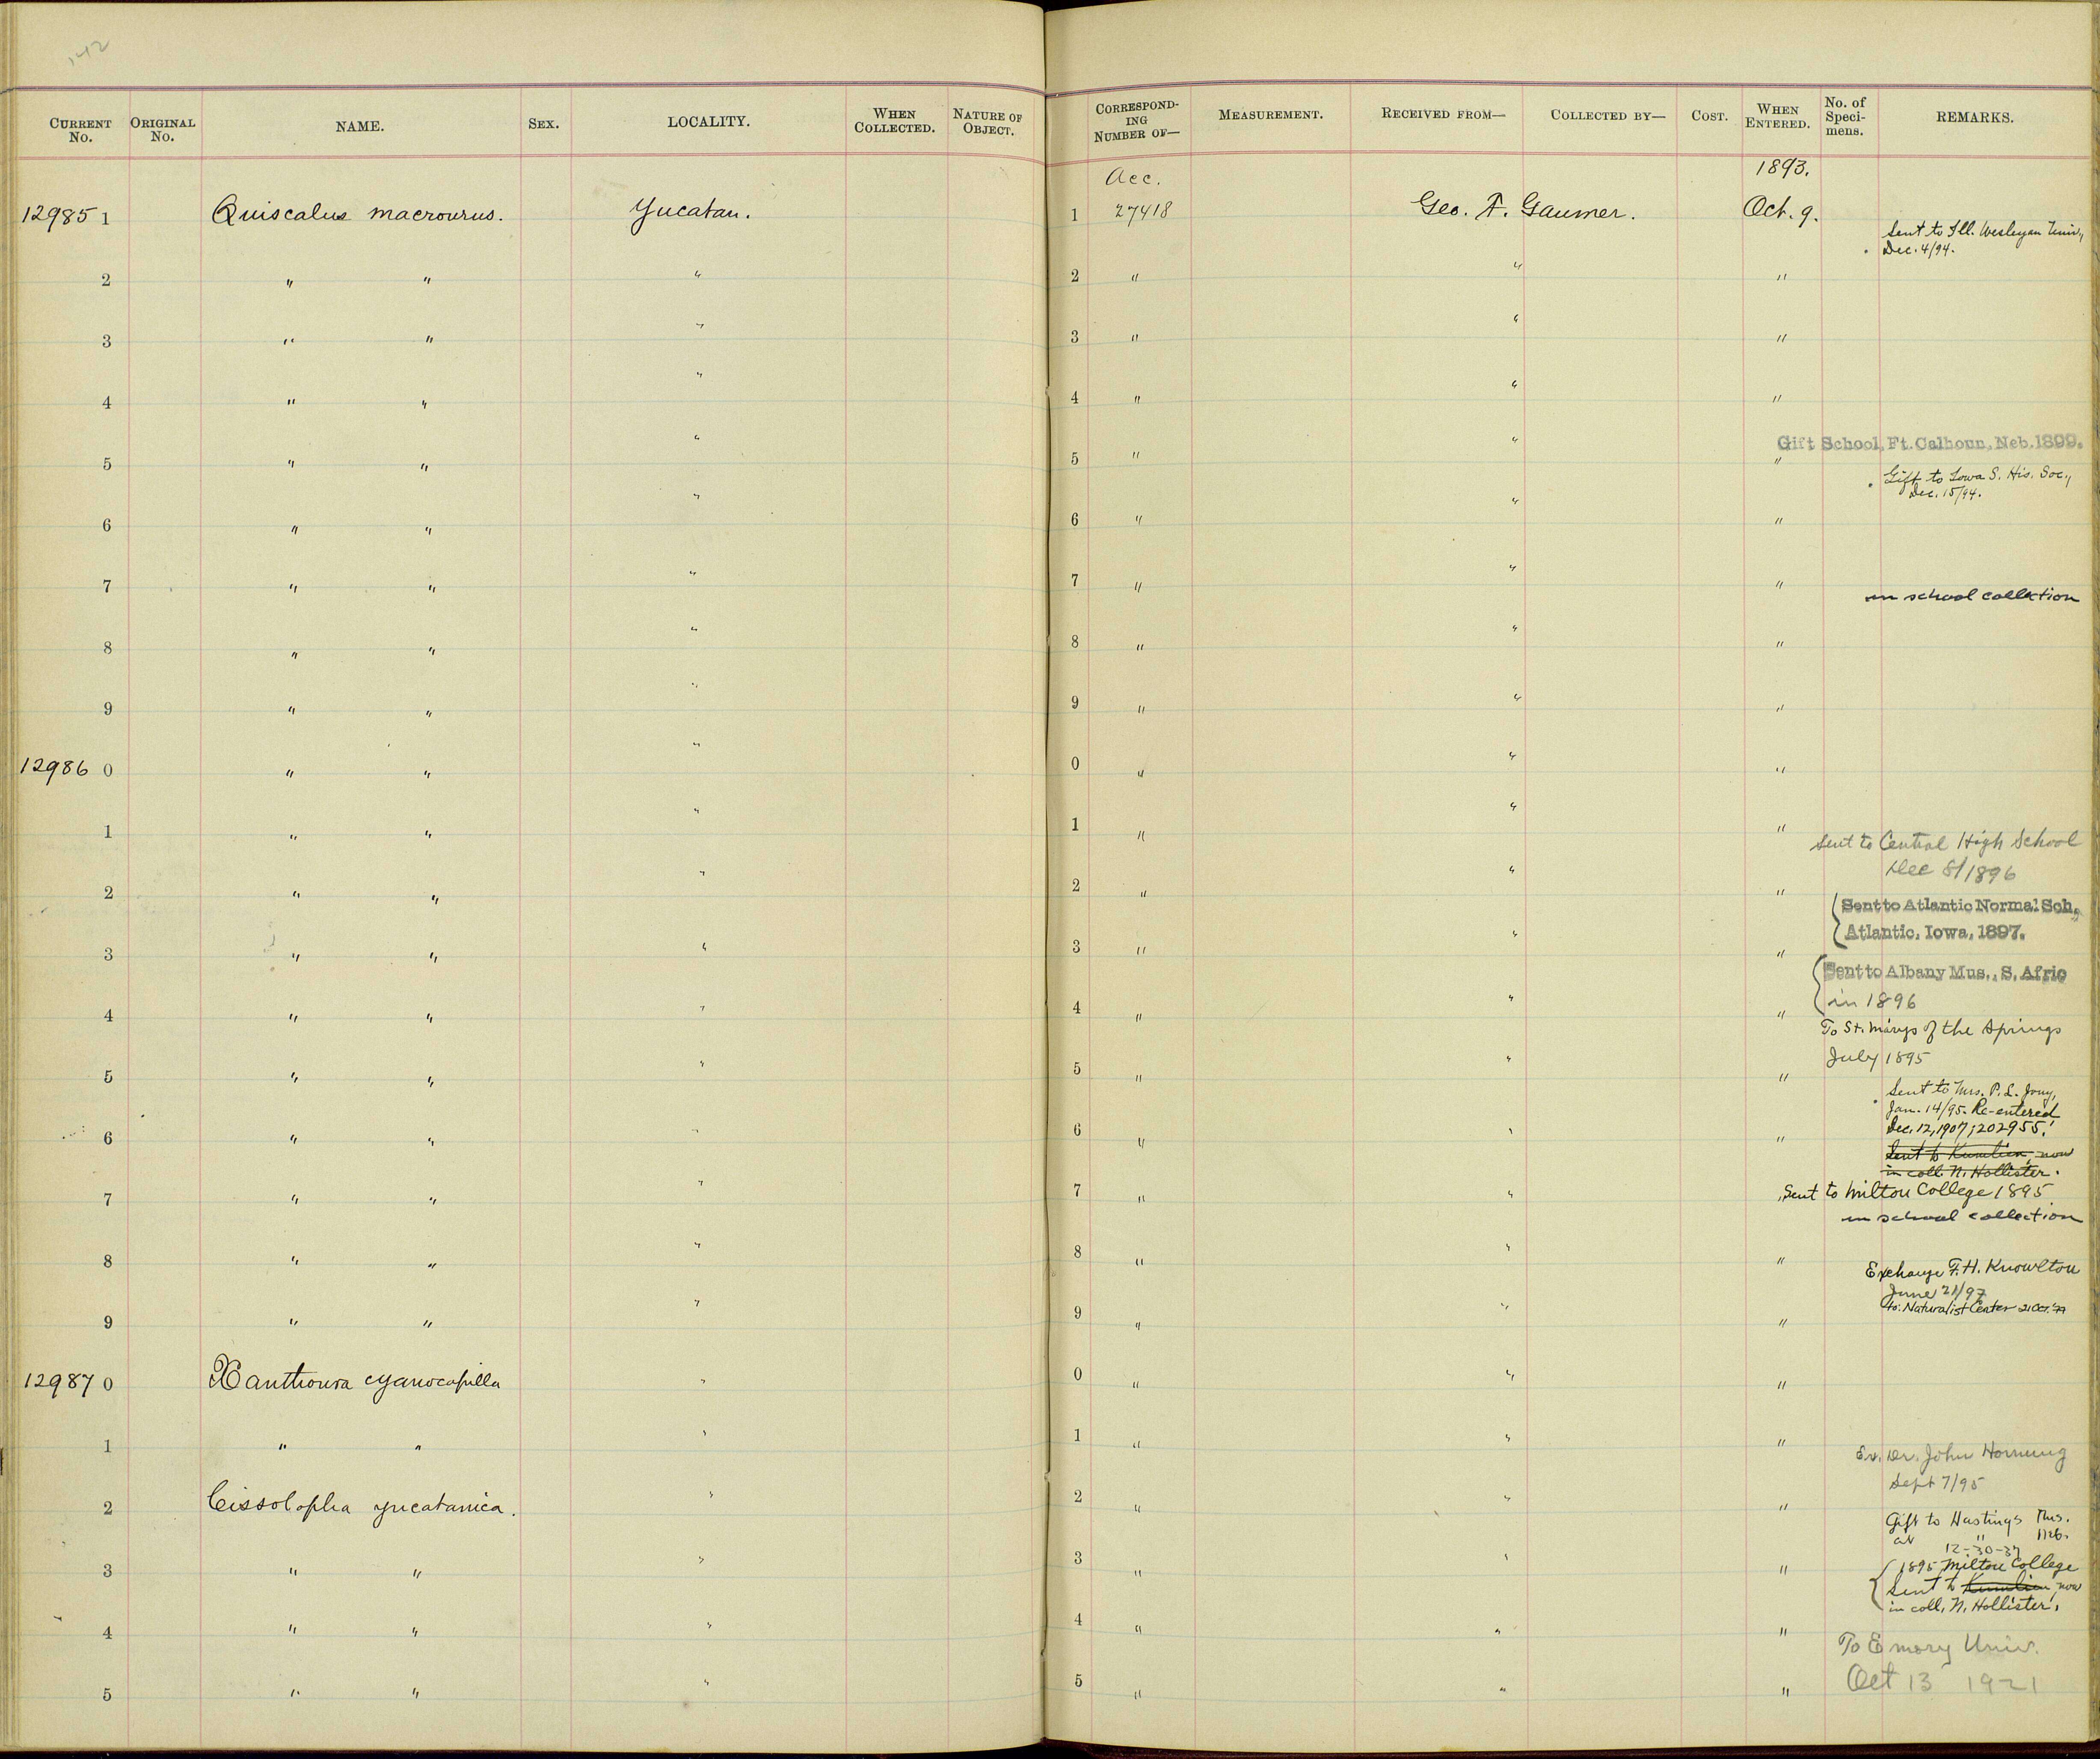 142
CURRENT No. ORIGINAL No. NAME. SEX. LOCALITY. WHEN COLLECTED. NATURE OF OBJECT. CORRESPONDING NUMBER OF— MEASUREMENT. RECEIVED FROM— COLLECTED BY— COST. WHEN ENTERED. No. of Specimens. REMARKS.
Acc. 1893.
12985 1 Quiscalus macrourus. Yucatan. 1 27418 Geo. F. Gaumer. Oct. 9.
Sent to Ill. Wesleyan Univ.,
Dec. 4/94.
2 " " " 2 " " "
3 " " " 3 " " "
4 " " " 4 " " "
Gift School, Ft. Calhoun, Neb. 1899.
5 " " " 5 " " "
Gift to Iowa S. His. Soc.,
Dec. 15/94.
6 " " " 6 " " "
7 " " " 7 " " "
in school collection
8 " " " 8 " " "
9 " " " 9 " " "
12986 0 " " " 0 " " "
1 " " " 1 " " "
Sent to Central High School
Dec 8/1896
2 " " " 2 " " "
Sent to Atlantic Normal Sch.,
Atlantic, Iowa, 1897.
3 " " " 3 " " "
Sent to Albany Mus., S. Afric
in 1896
4 " " " 4 " " "
To St. Marys of the Springs
July 1895
5 " " " 5 " " "
Sent to Mrs. P. L. Jouy,
Jan. 14/95. Re-entered
Dec. 12, 1907; 202955.
6 " " " 6 " " "
Sent to Kumlien, now
in coll. N. Hollister.
7 " " " 7 " "
Sent to Milton College 1895
in school collection
8 " " " 8 " " "
Exchange F. H. Knowlton
June 21/97
to: Naturalist Center 21 Oct.
9 " " " 9 " " "
12987 0 Xanthoura cyanocapilla " 0 " " "
1 " " " 1 " " "
Ex. Dr. John Hornung
Sept 7/95
2 Cissolopha yucatanica. " 2 " " "
Gift to Hastings Mus.
at " Neb.
12-30-37
3 " " " 3 " " "
1895 Milton College
Sent to Kumlien, now
in coll. N. Hollister.
4 " " " 4 " " "
To Emory Univ.
Oct 13 1921
5 " " " 5 " " "